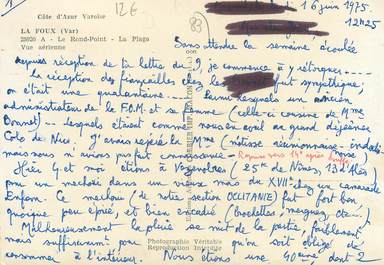 Côte d'Azur Varoise
12€
LA FOUX (Var)
28020 A - Le Rond-Point - La Plage
Vue aérienne
83
16 juin 1975.
12H25
Sans attendre la semaine écoulée
depuis réception de ta lettre du 9, je commence à y rétorquer
la réception des fiançailles chez les fait sympathique,
on était une quarantaine parmi lesquels un ancien
administrateur de la F.O.M. et sa femme (celle-ci cousine de Mme
Brunet) lesquels étaient comme nous en avril au grand déjeuner
Colo de Nice. J'avais repéré la Mme (métisse réunionnaise - indo
mais nous n'avions pas fait connaissance -
Hier G et moi étions à (25km de Nîmes, 13 d'Alès)
pour un mechoui dans un vieux mas du XVIIe chez un camarade
Enfom. Ce mechoui (de notre section OCCITANIE) fut fort bon,
quoique peu épicé, et bien encadré (brochettes, merguez, etc...)
Malheureusement la pluie se mit de la partie, faiblement
mais suffisamment pour qu'on soit obligé de
consommer à l'intérieur. Nous étions une 40aine dont 2
Photographie Véritable
Reproduction Interdite